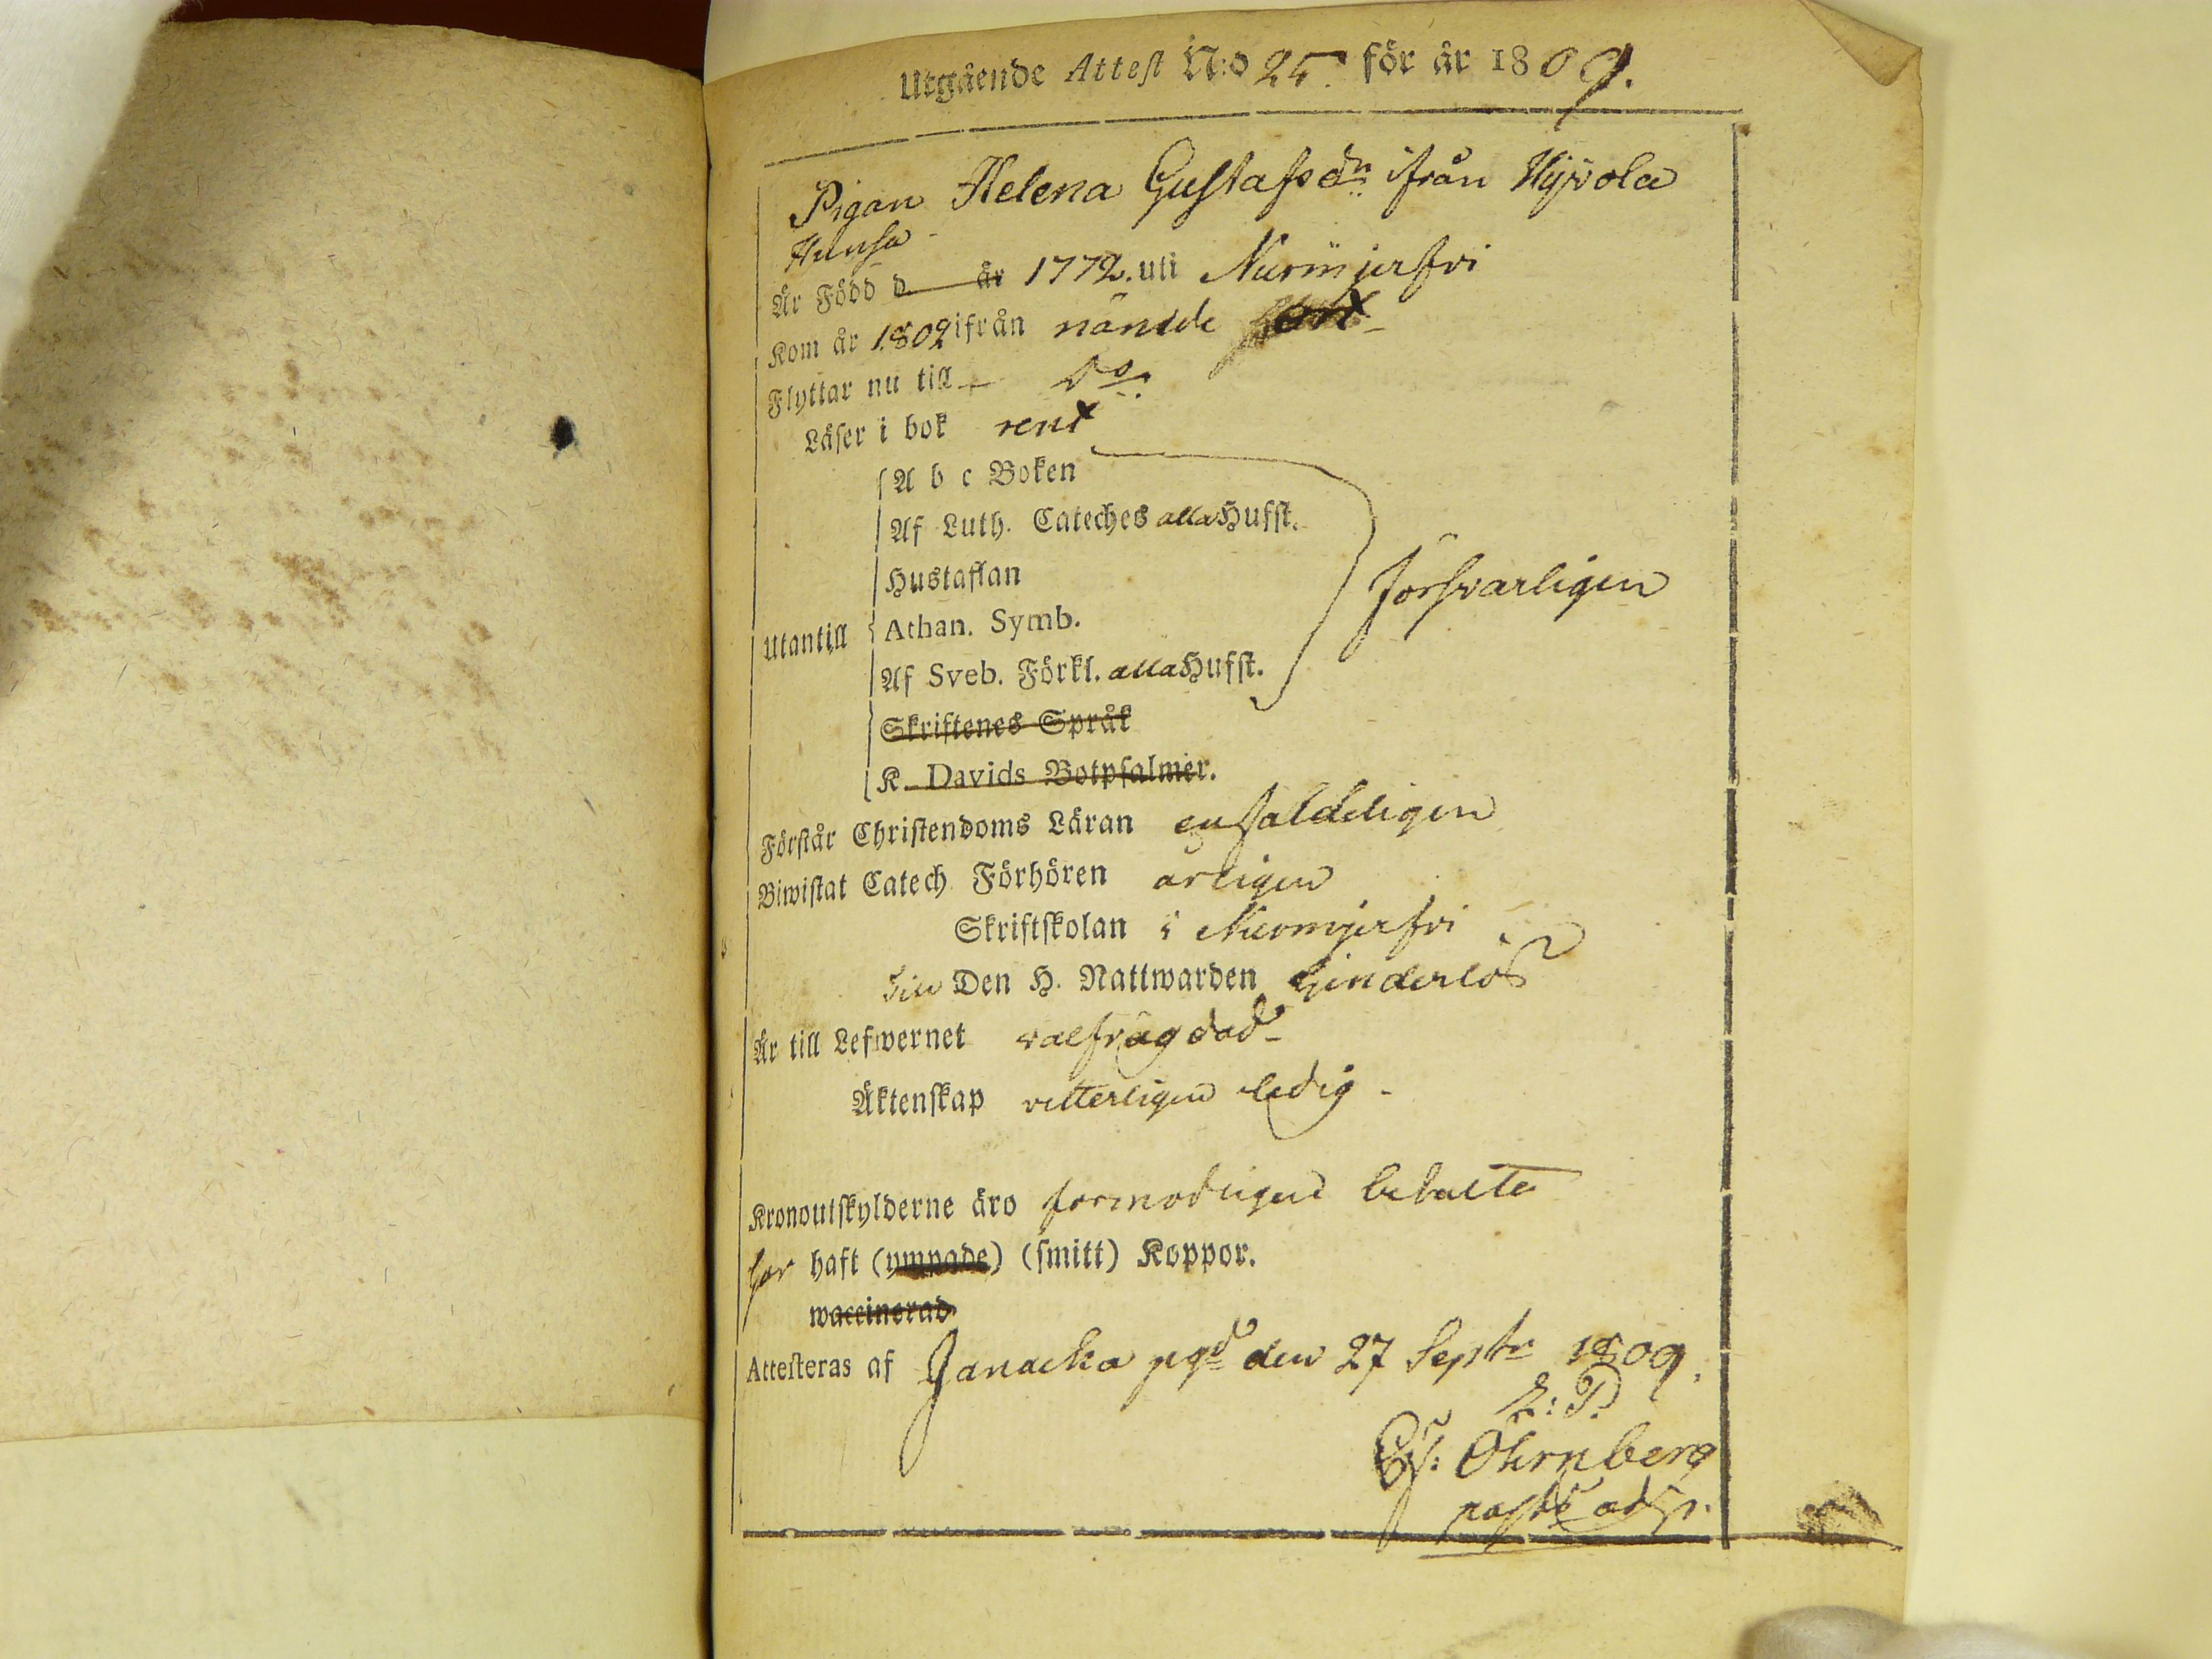 Utgående Attest N:o 25. för år 1809.
Pigan Helena Gustafsdr ifrån Hyvola
Är Född d. år 1772. uti Nurmijerfvi
Kom år 1802 ifrån nämde
Flyttar nu till Do.
Läser i bok rent
A b c Boken
Af Luth. Cateches alla Hufst.
Hustaflan
försvarligen
Utantill Athan. Symb.
Af Sveb. Förkl. alla Hufst.
Skriftenes Språk
K. Davids Botpsalmer.
Förstår Christendoms Läran enfaldeligen
Biwistat Catech Förhören årligen
Skriftskolan i Nurmijerfvi
till Den H. Nattwarden hinderlös
Är till Lefwernet välfrägdad
Äktenskap vetterligen ledig -
Kronoutskylderne äro förmodligen betalte
har haft (ympade) (smitt) Koppor.
waccinerad
Attesteras af Janacka pgd den 27 Septr 1809.
L: P.
Gs: Öhrnberg
past: adj.